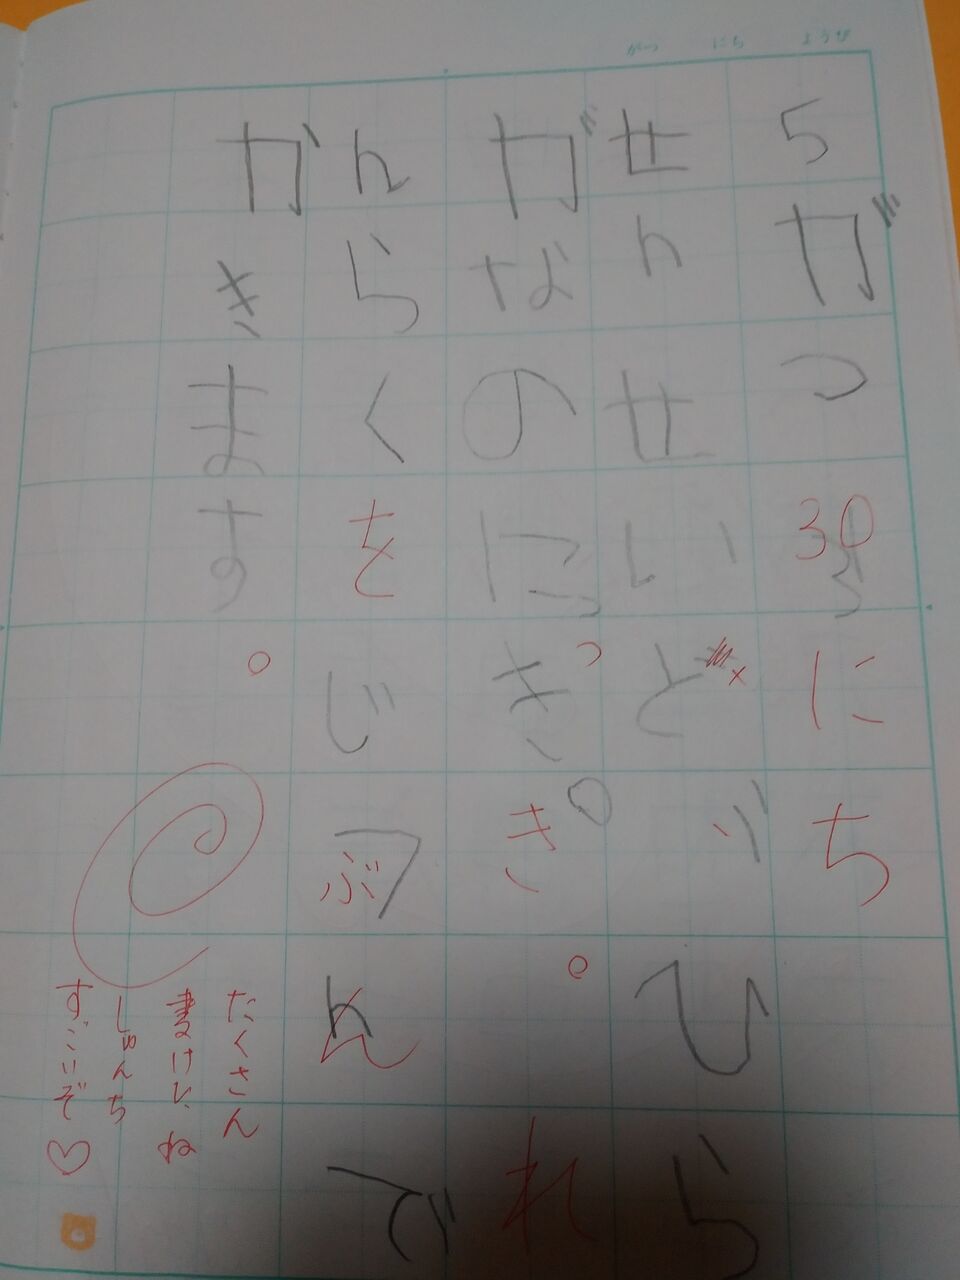 がつ にち ようび
らがつ30にち
せんせいどがひら
がなのにっき。きれ
んらくをじぶんで
がきます。
たくさん
書けたね
しゅんち
すごいぞ♡